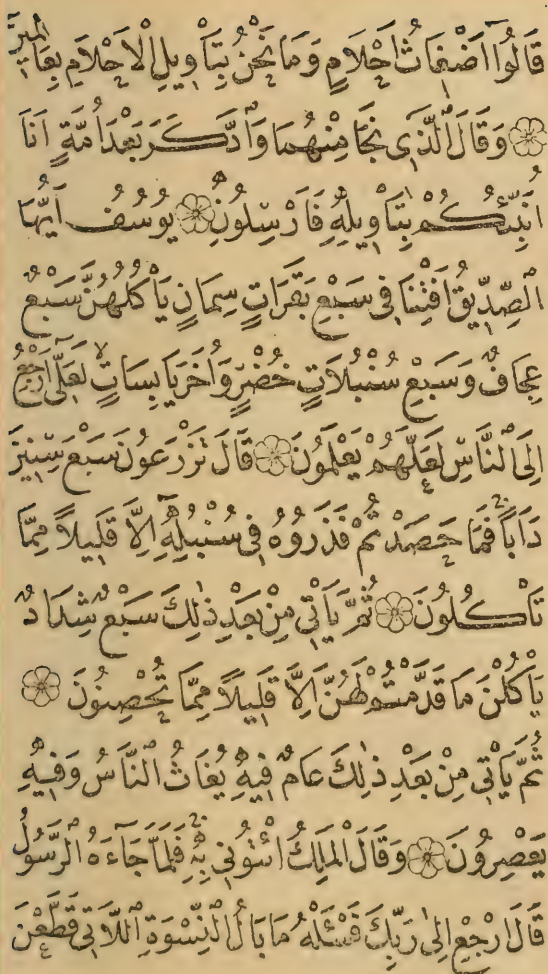 قَالُوا أَضْغَاثُ أَحْلَامٍ وَمَا نَحْنُ بِتَأْوِيلِ الْأَحْلَامِ بِعَالِمِينَ
۞ وَقَالَ الَّذِي نَجَا مِنْهُمَا وَادَّكَرَ بَعْدَ أُمَّةٍ أَنَا
أُنَبِّئُكُمْ بِتَأْوِيلِهِ فَأَرْسِلُونِ ۞ يُوسُفُ أَيُّهَا
الصِّدِّيقُ أَفْتِنَا فِي سَبْعِ بَقَرَاتٍ سِمَانٍ يَأْكُلُهُنَّ سَبْعٌ
عِجَافٌ وَسَبْعِ سُنْبُلَاتٍ خُضْرٍ وَأُخَرَ يَابِسَاتٍ لَعَلِّي أَرْجِعُ
إِلَى النَّاسِ لَعَلَّهُمْ يَعْلَمُونَ ۞ قَالَ تَزْرَعُونَ سَبْعَ سِنِينَ
دَأَبًا فَمَا حَصَدْتُمْ فَذَرُوهُ فِي سُنْبُلِهِ إِلَّا قَلِيلًا مِمَّا
تَأْكُلُونَ ۞ ثُمَّ يَأْتِي مِنْ بَعْدِ ذَٰلِكَ سَبْعٌ شِدَادٌ
يَأْكُلْنَ مَا قَدَّمْتُمْ لَهُنَّ إِلَّا قَلِيلًا مِمَّا تُحْصِنُونَ ۞
ثُمَّ يَأْتِي مِنْ بَعْدِ ذَٰلِكَ عَامٌ فِيهِ يُغَاثُ النَّاسُ وَفِيهِ
يَعْصِرُونَ ۞ وَقَالَ الْمَلِكُ ائْتُونِي بِهِ فَلَمَّا جَاءَهُ الرَّسُولُ
قَالَ ارْجِعْ إِلَىٰ رَبِّكَ فَسْئَلْهُ مَا بَالُ النِّسْوَةِ اللَّاتِي قَطَّعْنَ